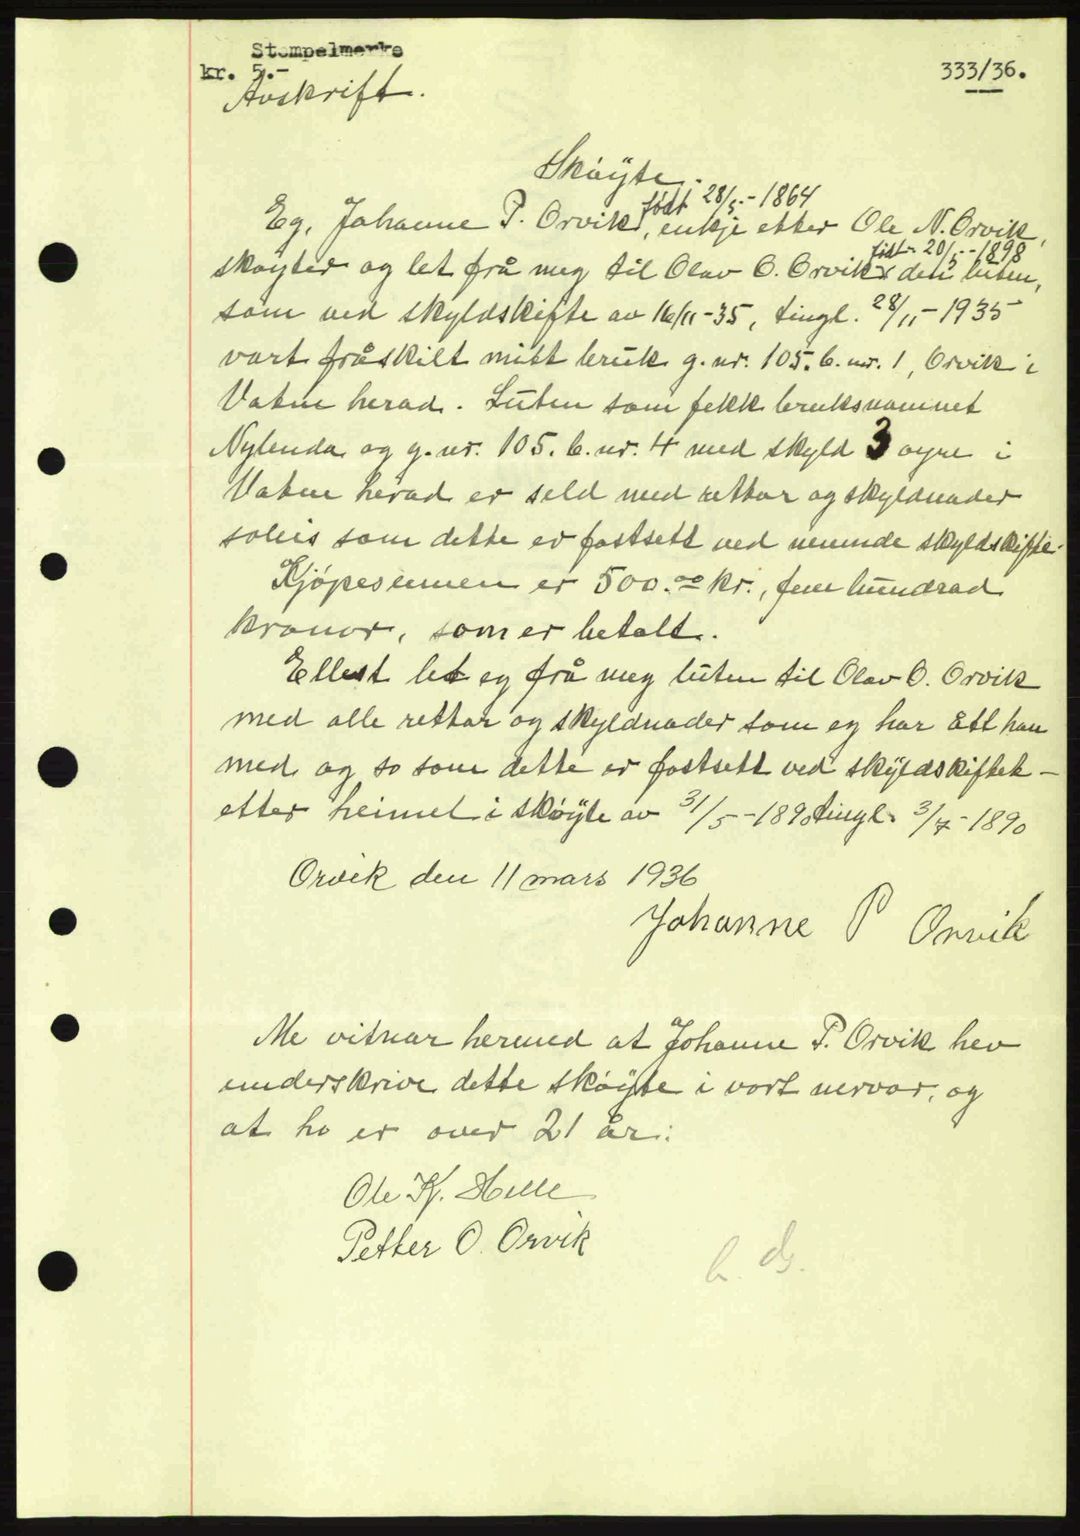 Stempelmerke
kr. 5.-
333/36.
Avskrift.
Skøyte.
født 28/5.-1864
Eg, Johanne P. Orvik, enkje etter Ole N. Orvik,
født 20/5.-1898
skøyter og let frå meg til Olav O. Orvik x den luten,
som ved skyldskifte av 16/11-35, tingl. 28/11-1935
vart fråskilt mitt bruk g.nr. 105. b.nr. 1, Orvik i
Vatne herad. Luten som fekk bruksnamnet
Nylenda og g.nr. 105. b.nr. 4 med skyld 3 øyre i
Vatne herad er seld med rettar og skyldnader
soleis som dette er fastsett ved nemnde skyldskifte.
Kjøpesumen er 500.00 kr., fem hundrad
kronor, som er betalt.
Ellest let eg frå meg luten til Olav O. Orvik
med alle rettar og skyldnader som eg har ått han
med og so som dette er fastsett ved skyldskiftet -
etter heimel i skøyte av 31/5-1890 tingl. 3/7-1890
Orvik den 11 mars 1936
Johanne P Orvik
Me vitnar hermed at Johanne P. Orvik hev
underskrive dette skøyte i vort nervær, og
at ho er over 21 år.
Ole K. Helle
Petter O. Orvik